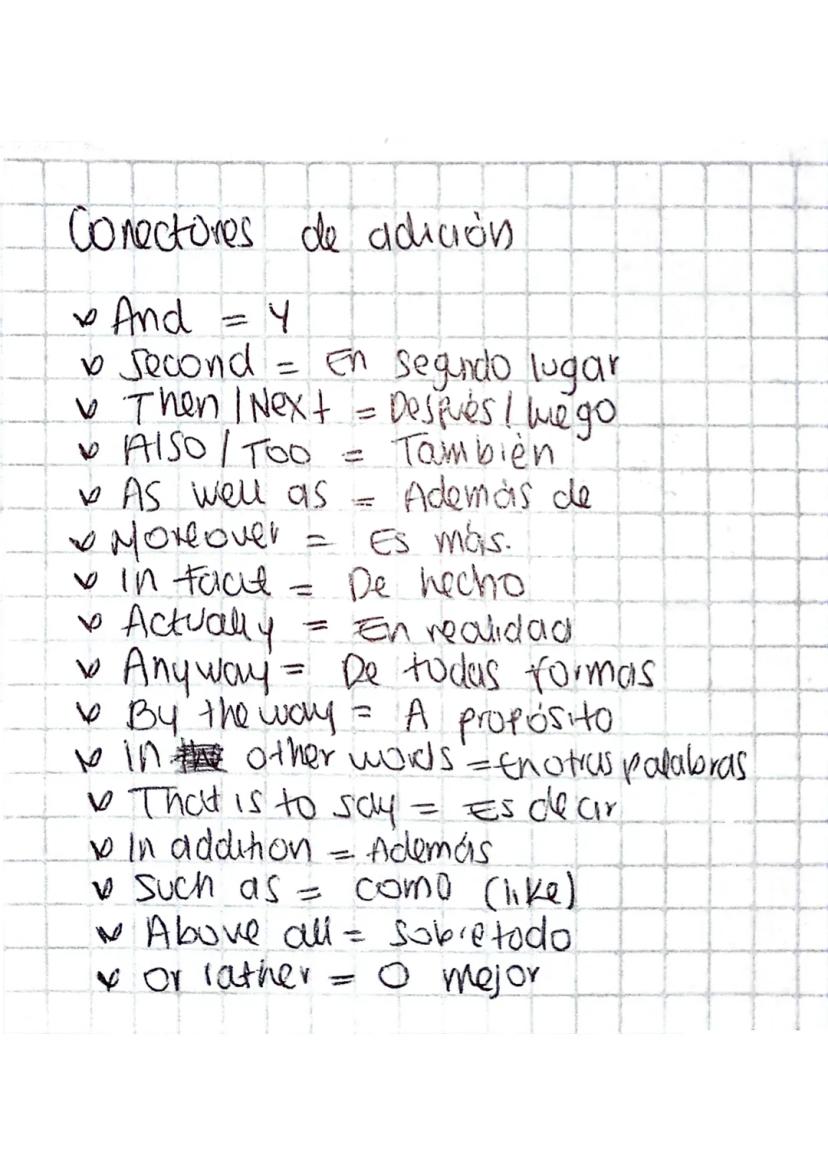 Conectores de adición
And = Y
Second = En segundo lugar
Then / Next = Después / luego
Also / Too = También
As well as = Además de
Moreover = Es más.
In fact = De hecho
Actually = En realidad
Anyway = De todas formas
By the way = A propósito
In other words = En otras palabras
That is to say = Es decir
In addition = Además
Such as = como (like)
Above all = sobretodo
Or rather = O mejor